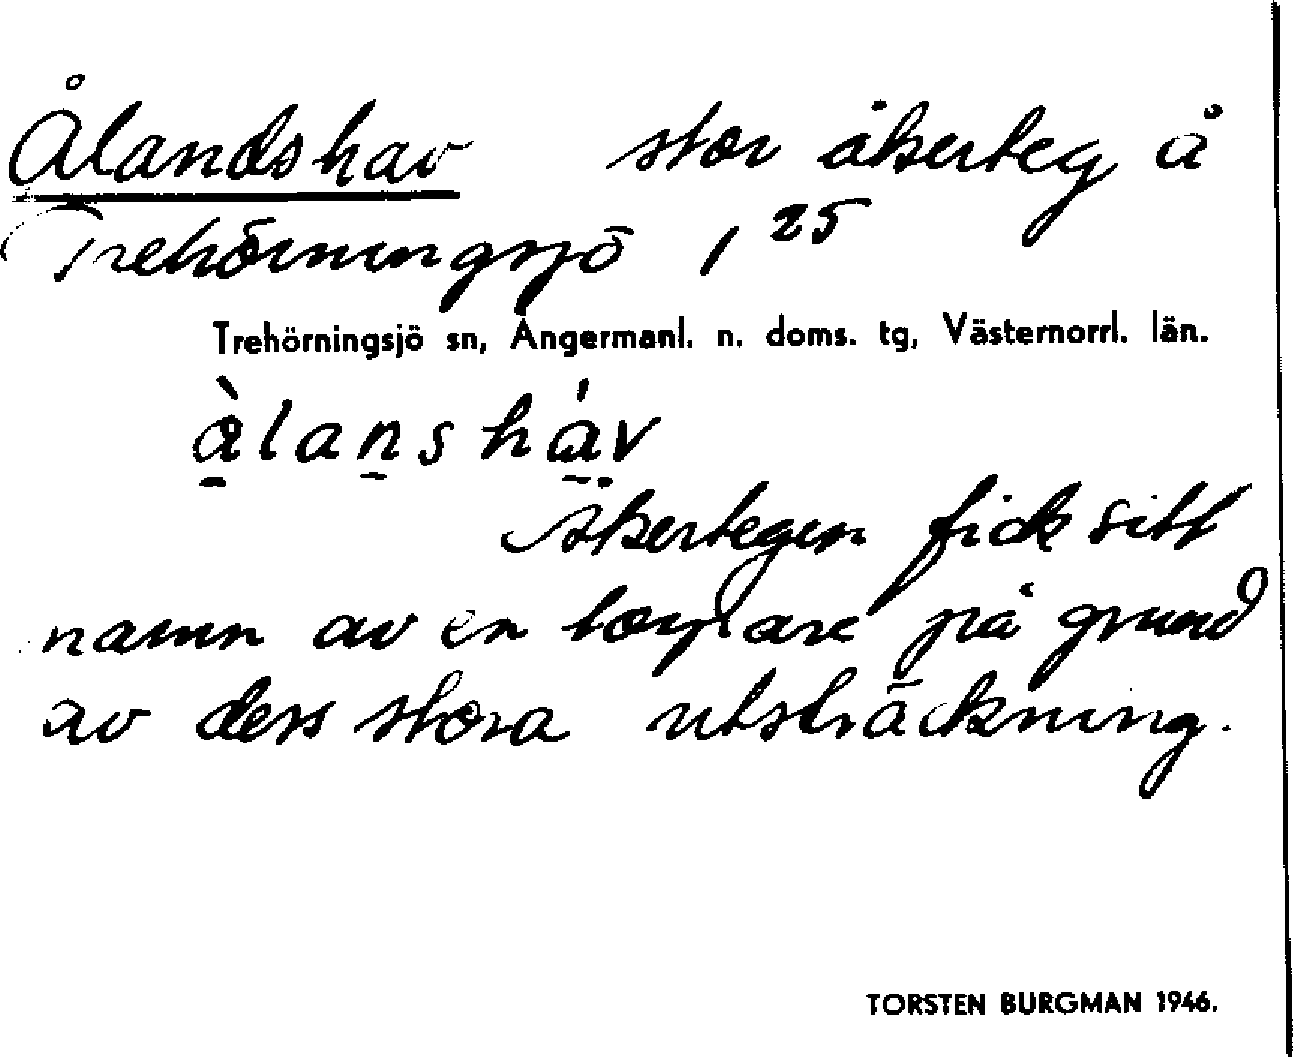 Ålandshav stor åkerteg å
Trehörningsjö 1 25
Trehörningsjö sn, Ångermanl. n. doms. tg, Västernorrl. län.
àlansháv
Åkertegen fick sitt
namn av en torpare på grund
av dess stora utsträckning.
TORSTEN BURGMAN 1946.